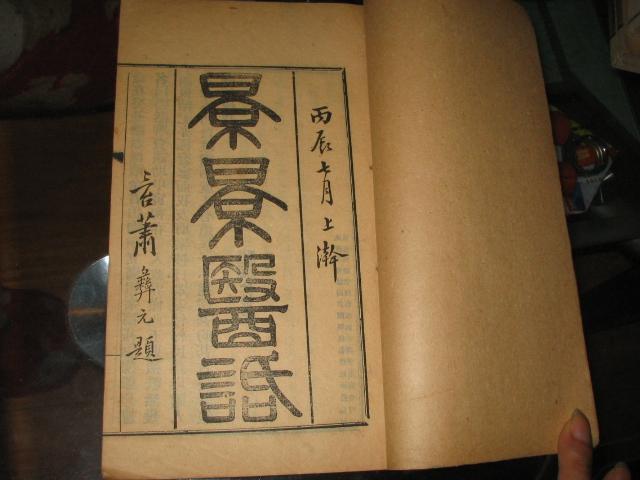 丙辰七月上澣
景景醫話
三台蕭彝元題